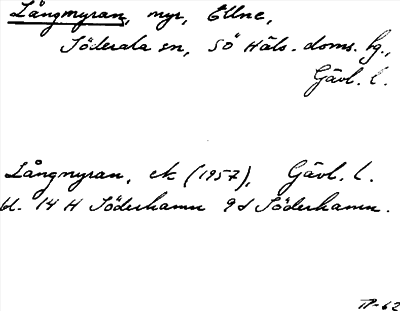 Långmyran, myr, Ellne,
Söderala sn, SÖ Häls. doms. hg.,
Gävl. l.
Långmyran, ek (1957), Gävl. l.
bl. 14 H Söderhamn 9 d Söderhamn.
TP-62